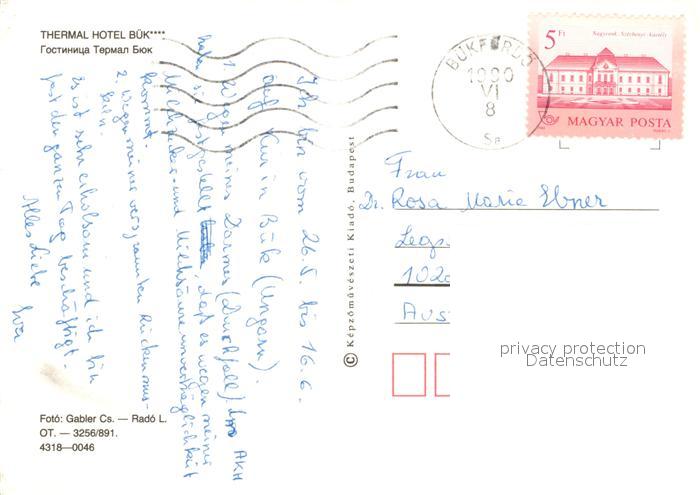 THERMAL HOTEL BÜK****
Гостиница Термал Бюк
Ich bin vom 26.5. bis 16.6.
auf Kur in Bük (Ungarn).
1. Wegen meines Darmes (Durchfall). Im AKH
habe sie festgestellt, daß es wegen meiner
Milchzucker- und Milchsäureunverträglichkeit
kommt.
2. Wegen meiner verspannten Rückenmus-
keln.
Es ist sehr erholsam und ich bin
fast den ganzen Tag beschäftigt.
Alles Liebe
Eva
Fotó: Gabler Cs. — Radó L.
OT. — 3256/891.
4318—0046
© Képzőművészeti Kiadó, Budapest
BÜKFÜRDŐ
1990
VI
8
5 Ft
Nagycenk, Széchenyi-kastély
MAGYAR POSTA
Frau
Dr. Rosa Maria Ebner
1020
Aus
privacy protection
Datenschutz